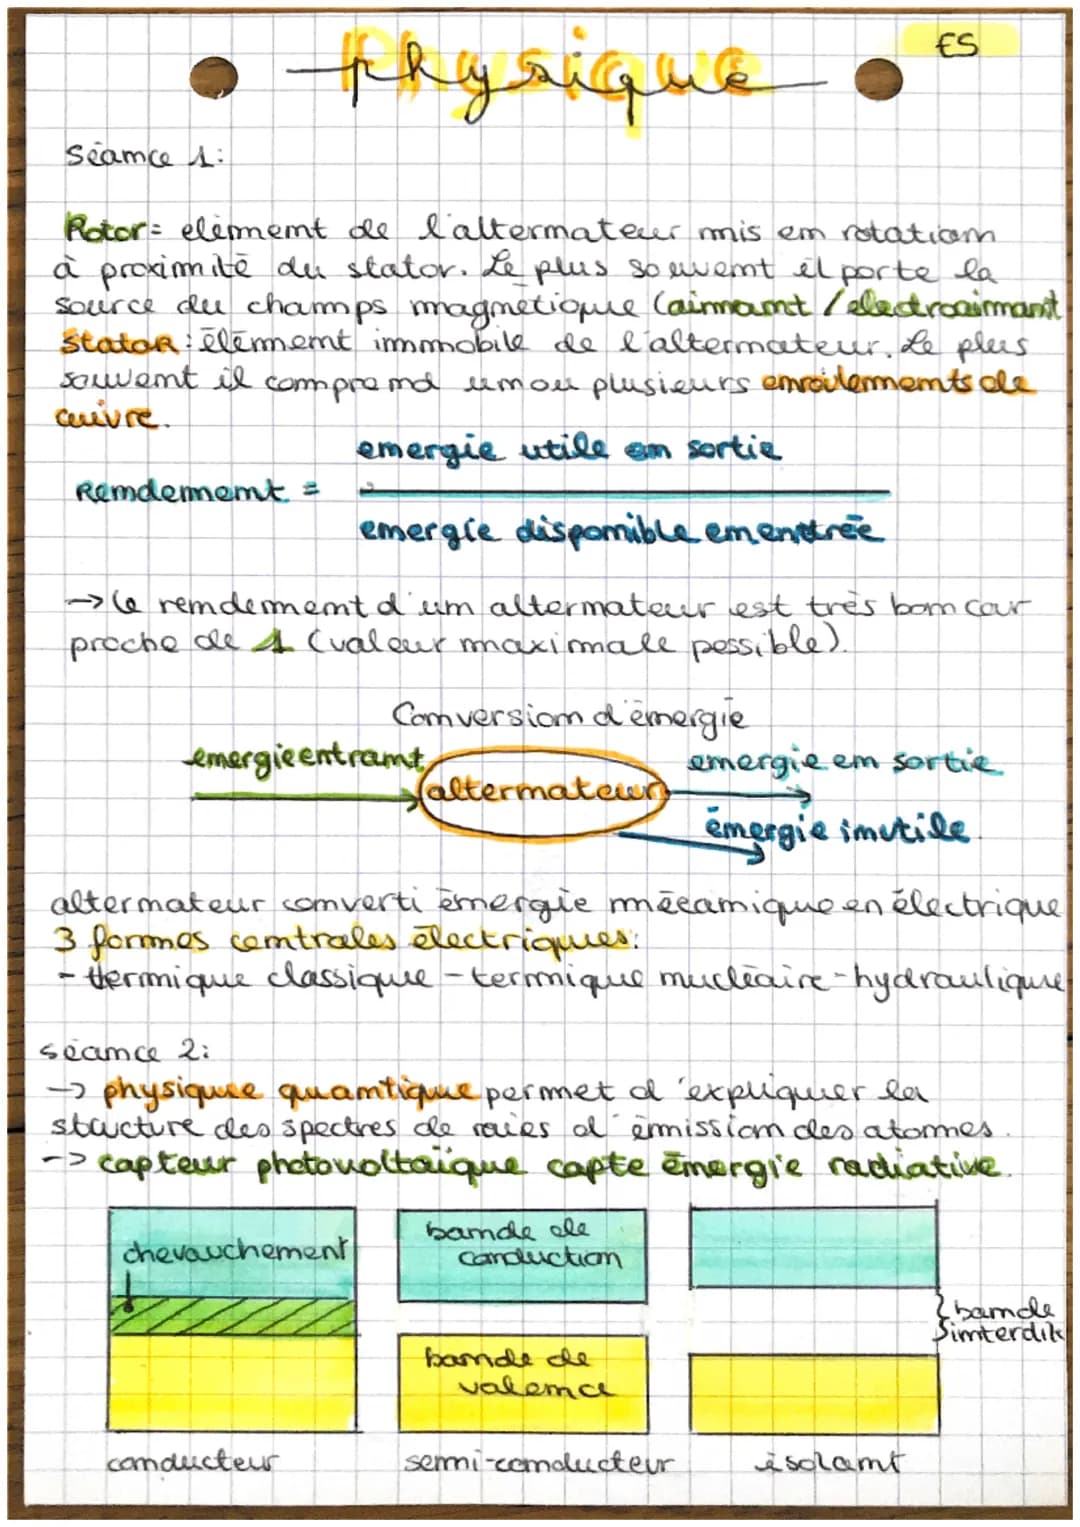 Physique
ES
Séance 1:
Rotor = elément de l'alternateur mis en rotation
à proximité du stator. Le plus souvent il porte la
source du champs magnétique (aimant / electroaimant
Stator : élément immobile de l'alternateur. Le plus
souvent il comprend un ou plusieurs enroulements de
cuivre.
Rendement =
energie utile en sortie
energie disponible en entrée
→ le rendement d'un alternateur est très bon car
proche de 1 (valeur maximale possible).
Conversion d'énergie
energie entrant
alternateur
energie en sortie
énergie inutile
alternateur converti énergie mécanique en électrique
3 formes centrales électriques:
- termique classique - termique nucléaire - hydraulique
séance 2:
-> physique quantique permet d'expliquer la
structure des spectres de raies d'émission des atomes.
-> capteur photovoltaïque capte énergie radiative
chevauchement
bande de
conduction
bande
interdite
bande de
valence
conducteur
semi-conducteur
isolant